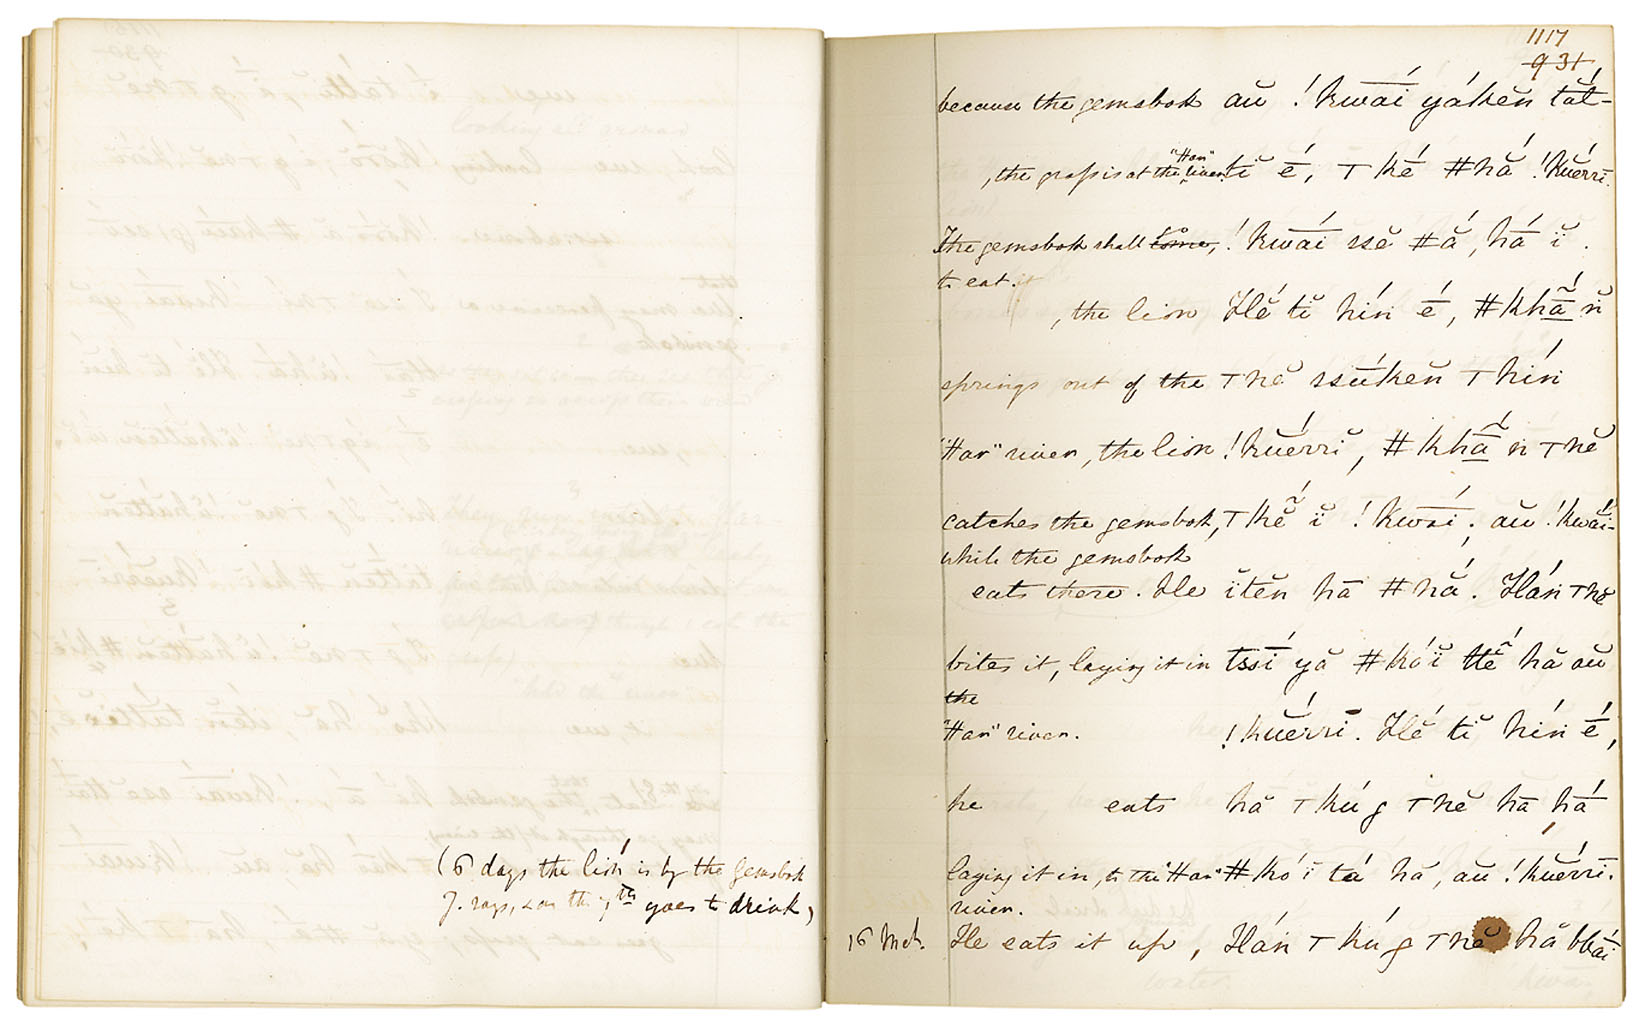 (6 days the lion is by the gemsbok
J. says, & on the 7th goes to drink)
1117
931
because the gemsbok aŭ !kwāí yákĕn tắt-
, the grass is at the "Har" river. tĭ é̄, ⊤ké̄ #hắ !kŭérrĭ.
The gemsbok shall come, !kwāí ssĕ #ắ, hā́ ĭ.
to eat it
, the lion Hĕ́ tĭ hín é̄, #khā̃́ n̆
springs out of the ⊤nĕ ssúkĕn ⊤hín
"Har" river, the lion !kŭérrĭ, #khā̃́ n ⊤nĕ
catches the gemsbok, ⊤kẽ́ ĭ !kwāí, aŭ !kwāí-
while the gemsbok
eats there. He ĭtĕn hā #hắ. Hán ⊤nĕ
bites it, laying it in tssī́ yă #kóĭ ttẽ́ hă aŭ
the
"Har" river. !kŭérrĭ. Hĕ́ tĭ hín é̄,
he eats hă ⊤kúg ⊤nĕ hā hā́
laying it in, to the "Har" #kóĭ tá hă, aŭ !kŭérrĭ.
river.
16 Mch. He eats it up, Hán ⊤kúg ⊤nĕ hă bbāí